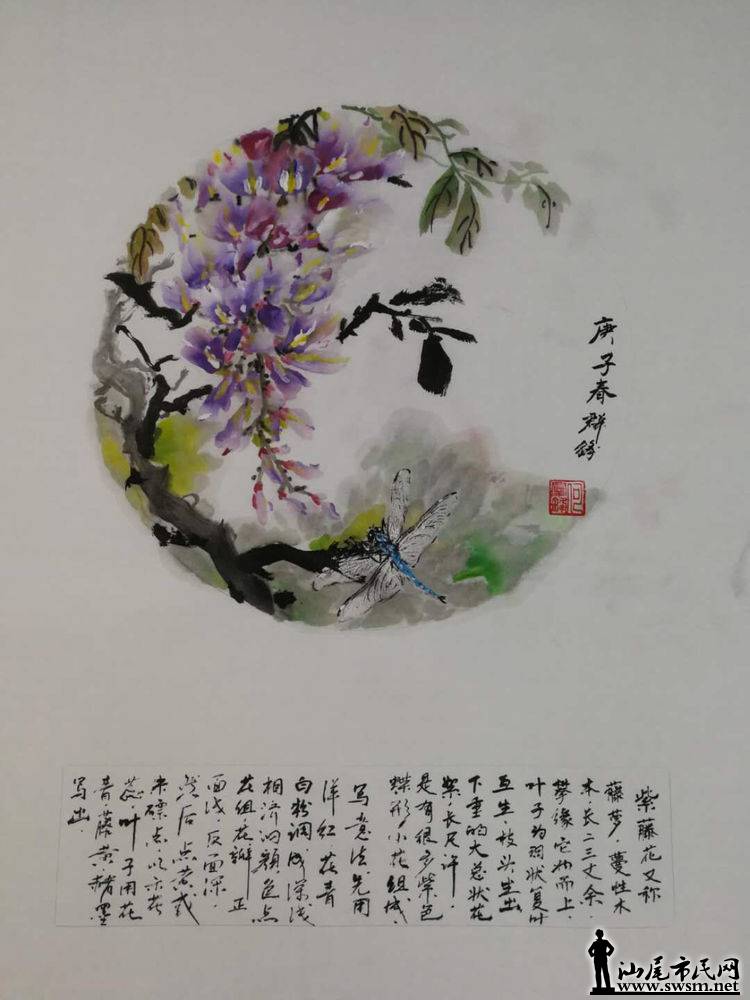 庚子春群
紫藤花又称
藤萝，蔓性木
本，长二三丈余，
攀缘它物而上，
叶子为羽状复叶
互生，枝头生出
下重的大总状花
絮，长尺许，
是有很多紫色
蝶形小花组成，
写意法先用
洋红、花青
白粉调成深浅
相济的颜色点
花组，花瓣正
面浅，反面深，
然后点黄或
朱磦点以示花
蕊，叶子用花
青藤黄赭墨
写出
汕尾市民网
www.swsm.net